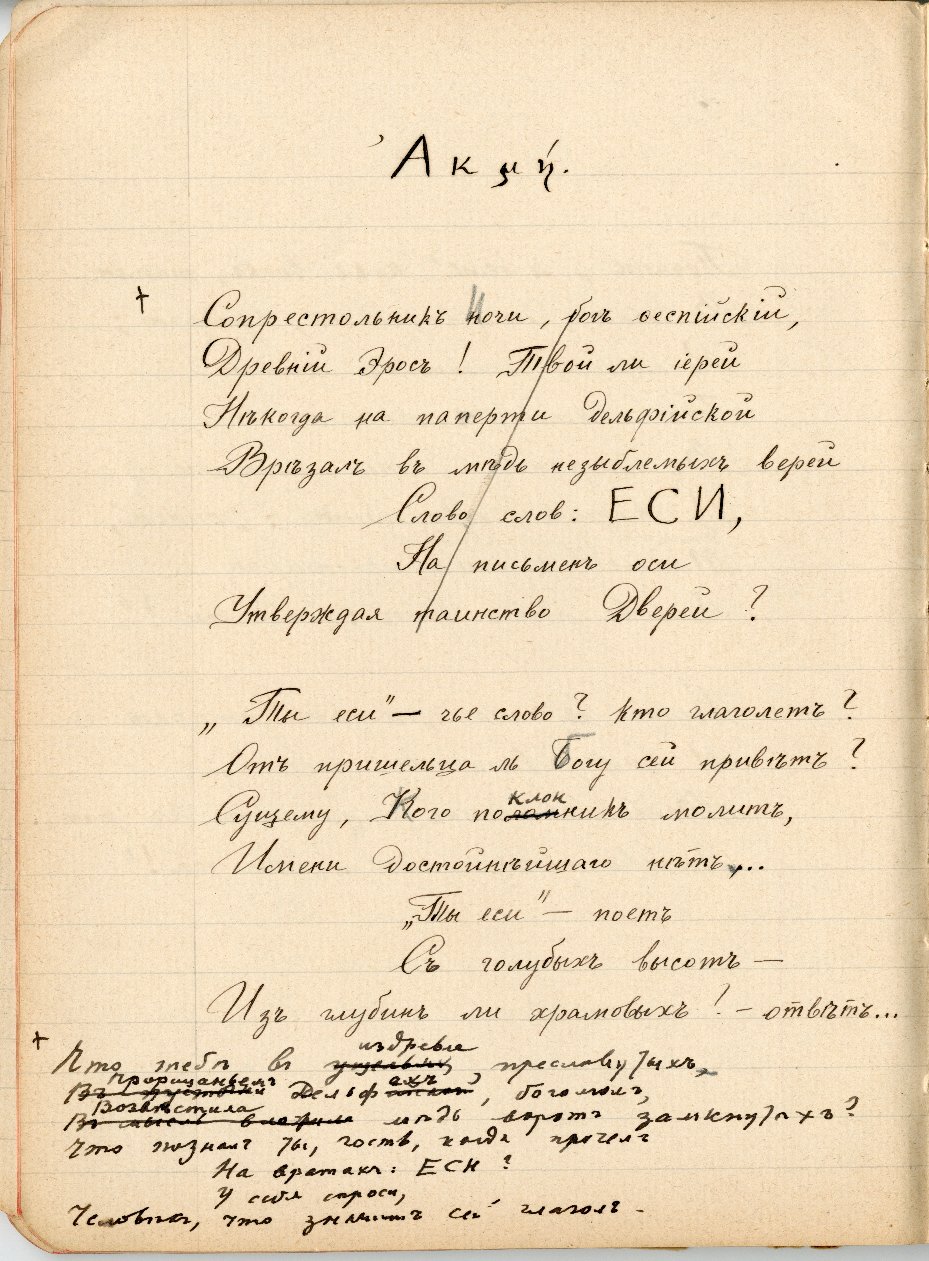 Ἀκμή.
Сопрестольникъ ночи, богъ ѳеспійскій,
Древній Эросъ! Твой ли іерей
Нѣкогда на паперти дельфійской
Врѣзалъ въ мѣдь незыблемыхъ верей
Слово слов: ЕСИ,
На письменъ оси
Утверждая таинство Дверей?
„Ты еси" — чье слово? Кто глаголетъ?
Отъ пришельца ль Богу сей привѣтъ?
Сущему, Кого поломникъ молитъ,
клон
Имени достойнѣйшаго нѣтъ...
„Ты еси" — поетъ
Съ голубыхъ высотъ —
Изъ глубинъ ли храмовыхъ! — отвѣтъ...
издревле
Что тебѣ въ ущельяхъ, преславутыхъ,
Прорицаньемъ ахъ
Въ Дельфійской, богомолъ,
Возвѣстила
Въ мѣдь воротъ замкнутыхъ?
Что позналъ ты, гость, когда прочелъ
На вратахъ: ЕСИ?
У себя спроси,
Человѣкъ, что значитъ сей глаголъ.